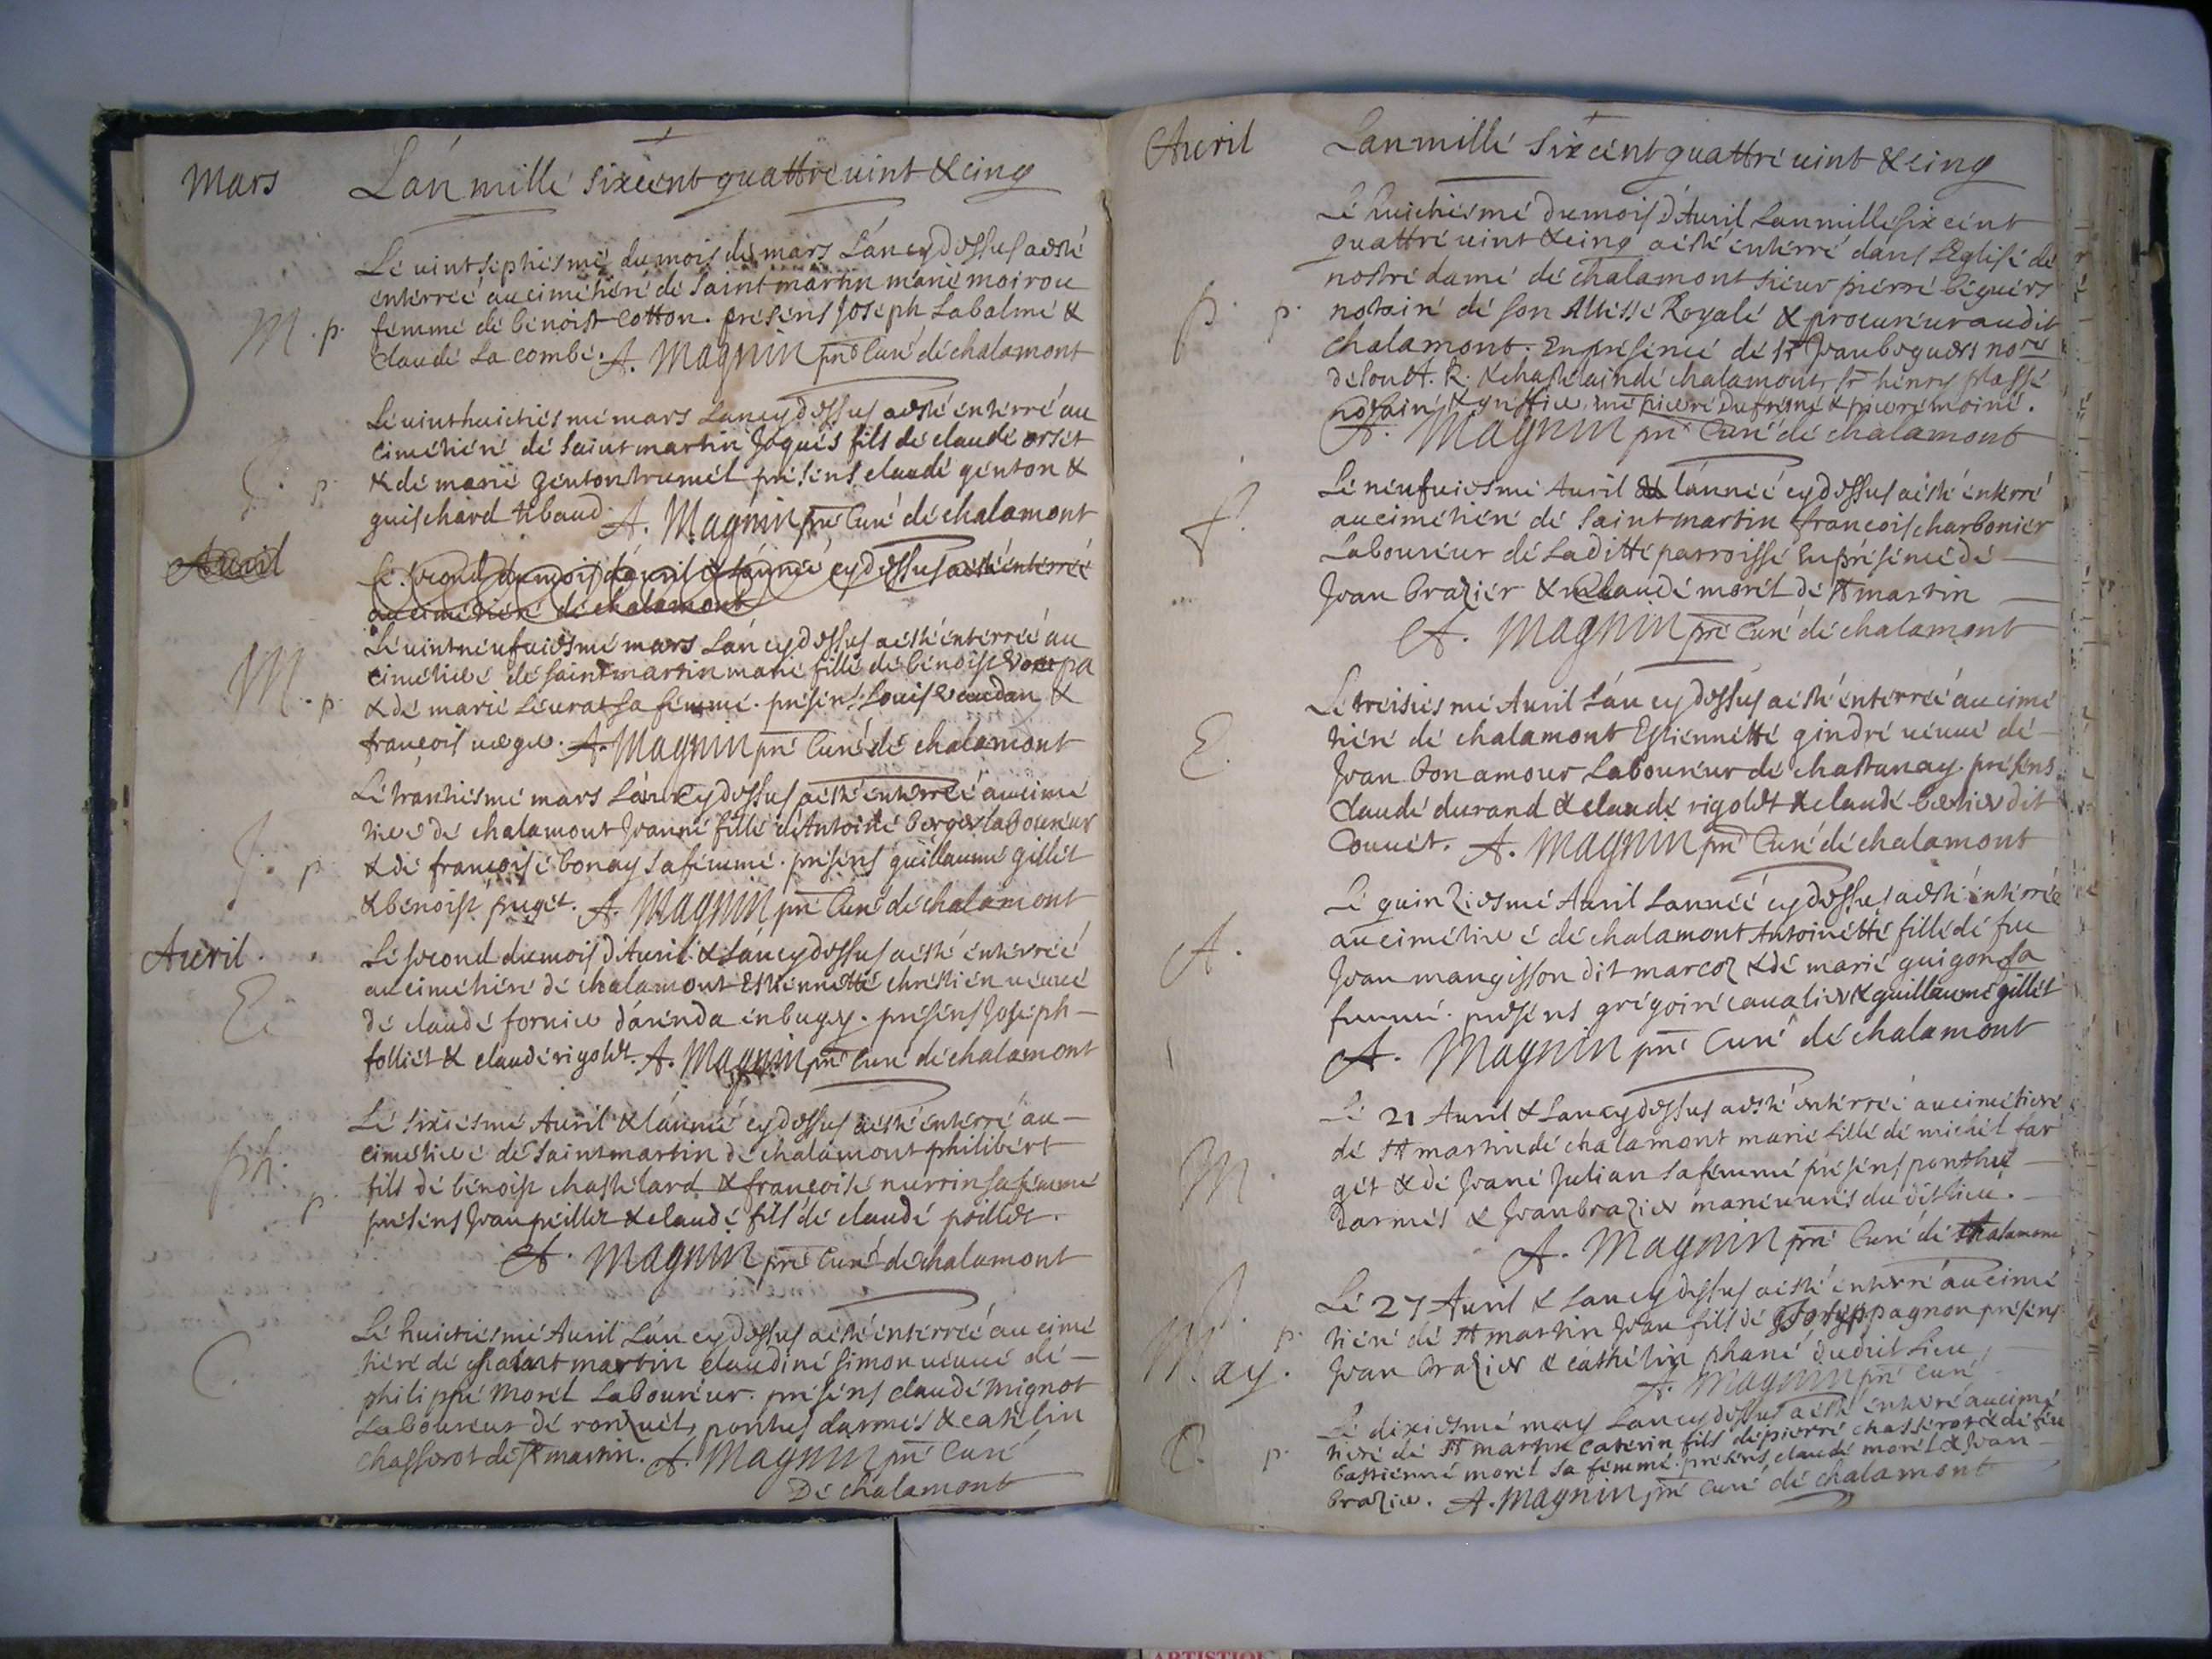 Mars
Lán mille sixcent quattre vint & cinq
Lé vintséphiésmé du mois dé mars Lán cy dessus a esté
enterreé au ciméhiéré dé saint martin marié moirou
M. p.
fémmé dé bénoist cotton. présens Joséph Labalmé &
Claudé La combé. A. Magnin pré Curé dé chalamont
Lé vinthuictiésmé mars Lan cy dessus a esté énterré au
ciméhiéré dé saint martin Jaqués fils dé claudé orsét
J. p.
& dé marié génton présens claudé génton &
guischard tibaud A. Magnin pré Curé dé chalamont
Auril
Lé second du mois dauril & lánneé cy dessus a esté énterreé
au ciméhiéré dé chalamont
Lé vintnéufuiésmé mars Lán cy dessus a esté énterreé au
ciméhieré dé saint martin marié fillé dé bénoist
M. p.
& dé marié Léurat sa fémmé. présens Louis &
françois. A. Magnin pré Curé dé chalamont
Lé trantiésmé mars Lán cy dessus a esté énterreé au cimé
hieré dé chalamont Jeanné fillé d'Antoiné bergér labouréur
J. p.
& dé françoisé bonay sa fémmé. présens guillaumé gillét
& bénoist pugét. A. Magnin pré Curé dé chalamont
Auril.
Lé second du mois d'Auril & Lán cy dessus a esté énterreé
au ciméhiéré dé chalamont Estiénnétté chréstién uéuué
E.
dé claudé fornier d'arénda én bugey. présens Joséph
folliét & claudé rigolét. A. Magnin pré Curé dé chalamont
Lé sixiésmé Auril & lánneé cy dessus a esté énterré au
ciméhieré dé saint martin dé chalamont philibért
ph. p
fils dé bénoist chastélard & françoisé nurrin sa fémmé
présens Jean péillét & claudé fils dé claudé poillét.
A. Magnin pré Curé dé chalamont
Lé huictiésmé Auril Lán cy dessus a esté énterreé au cimé
hiéré dé saint martin claudiné simon uéuué dé
C.
philippé morél Labouréur. présens claudé mignot
Labouréur dé ronzuél, pontus darmés & catélin
chassérot dé st martin. A. Magnin pré Curé
Dé chalamont
Auril
Lan millé six cént quattré uint & cinq
Lé huictiésmé du mois d'Auril Lan millé six cént
quattré uint & cinq a esté énterré dans L'églisé dé
nostré damé dé chalamont siéur piérré béguérs
p. p.
notairé dé son Altéssé Royalé & procuréur audit
chalamont. En présencé dé sr Jean béguérs nore
dé sadt A. R. & chastélain dé chalamont, sr hénry plassé
notairé & gréffier, mé piérré dufrésné & piérré moiné.
A. Magnin pré Curé dé chalamont
Lé néufuiésmé Auril & lánneé cy dessus a esté énterré
au ciméhiéré dé saint martin françois charboniér
f.
Labouréur dé Laditté parroissé En présencé dé
Jean braziér & claudé morél dé st martin
A. Magnin pré Curé dé chalamont
Lé tréisiésmé Auril Lán cy dessus a esté énterreé au cimé
hiéré dé chalamont Estiénnétté gindré uéuué dé
E.
Jean bonamour Labouréur dé chastanay. présens
claudé durand & claudé rigolét & claudé bertier dit
Couuét. A. Magnin pré Curé dé chalamont
Lé quinziésmé Auril L'anneé cy dessus a esté énterreé
au ciméhieré dé chalamont Antoinétté fillé dé feu
A.
Jean mangisson dit marcoz & dé marié guigon sa
fémmé. présens grégoiré caualier & guillaumé gillét
A. Magnin pré Curé dé chalamont
Lé 21 Auril & Lan cy dessus a esté énterreé au ciméhieré
dé st martin dé chalamont marié fillé dé michél far
M.
gét & dé Jeané Julian sa fémmé présens ponthus
darmés & Jean brazier manéuurés du dit lieu.
A. Magnin pré Curé dé chalamont
Lé 27 Auril & Lan cy dessus a esté énterré au cimé
p.
hiéré dé st martin Jean fils dé Joseph pagnon présens
May.
Jean brazier & cathélin phané dudit lieu
A. Magnin pré Curé
Lé dixiésmé may Lan cy dessus a esté énterré au cimé
C. p.
hiéré dé st martin catérin fils dé piérré chassérot & dé feu
bastiénné morél sa fémmé. présens claudé morél & Jean
brazier. A. Magnin pré Curé dé chalamont